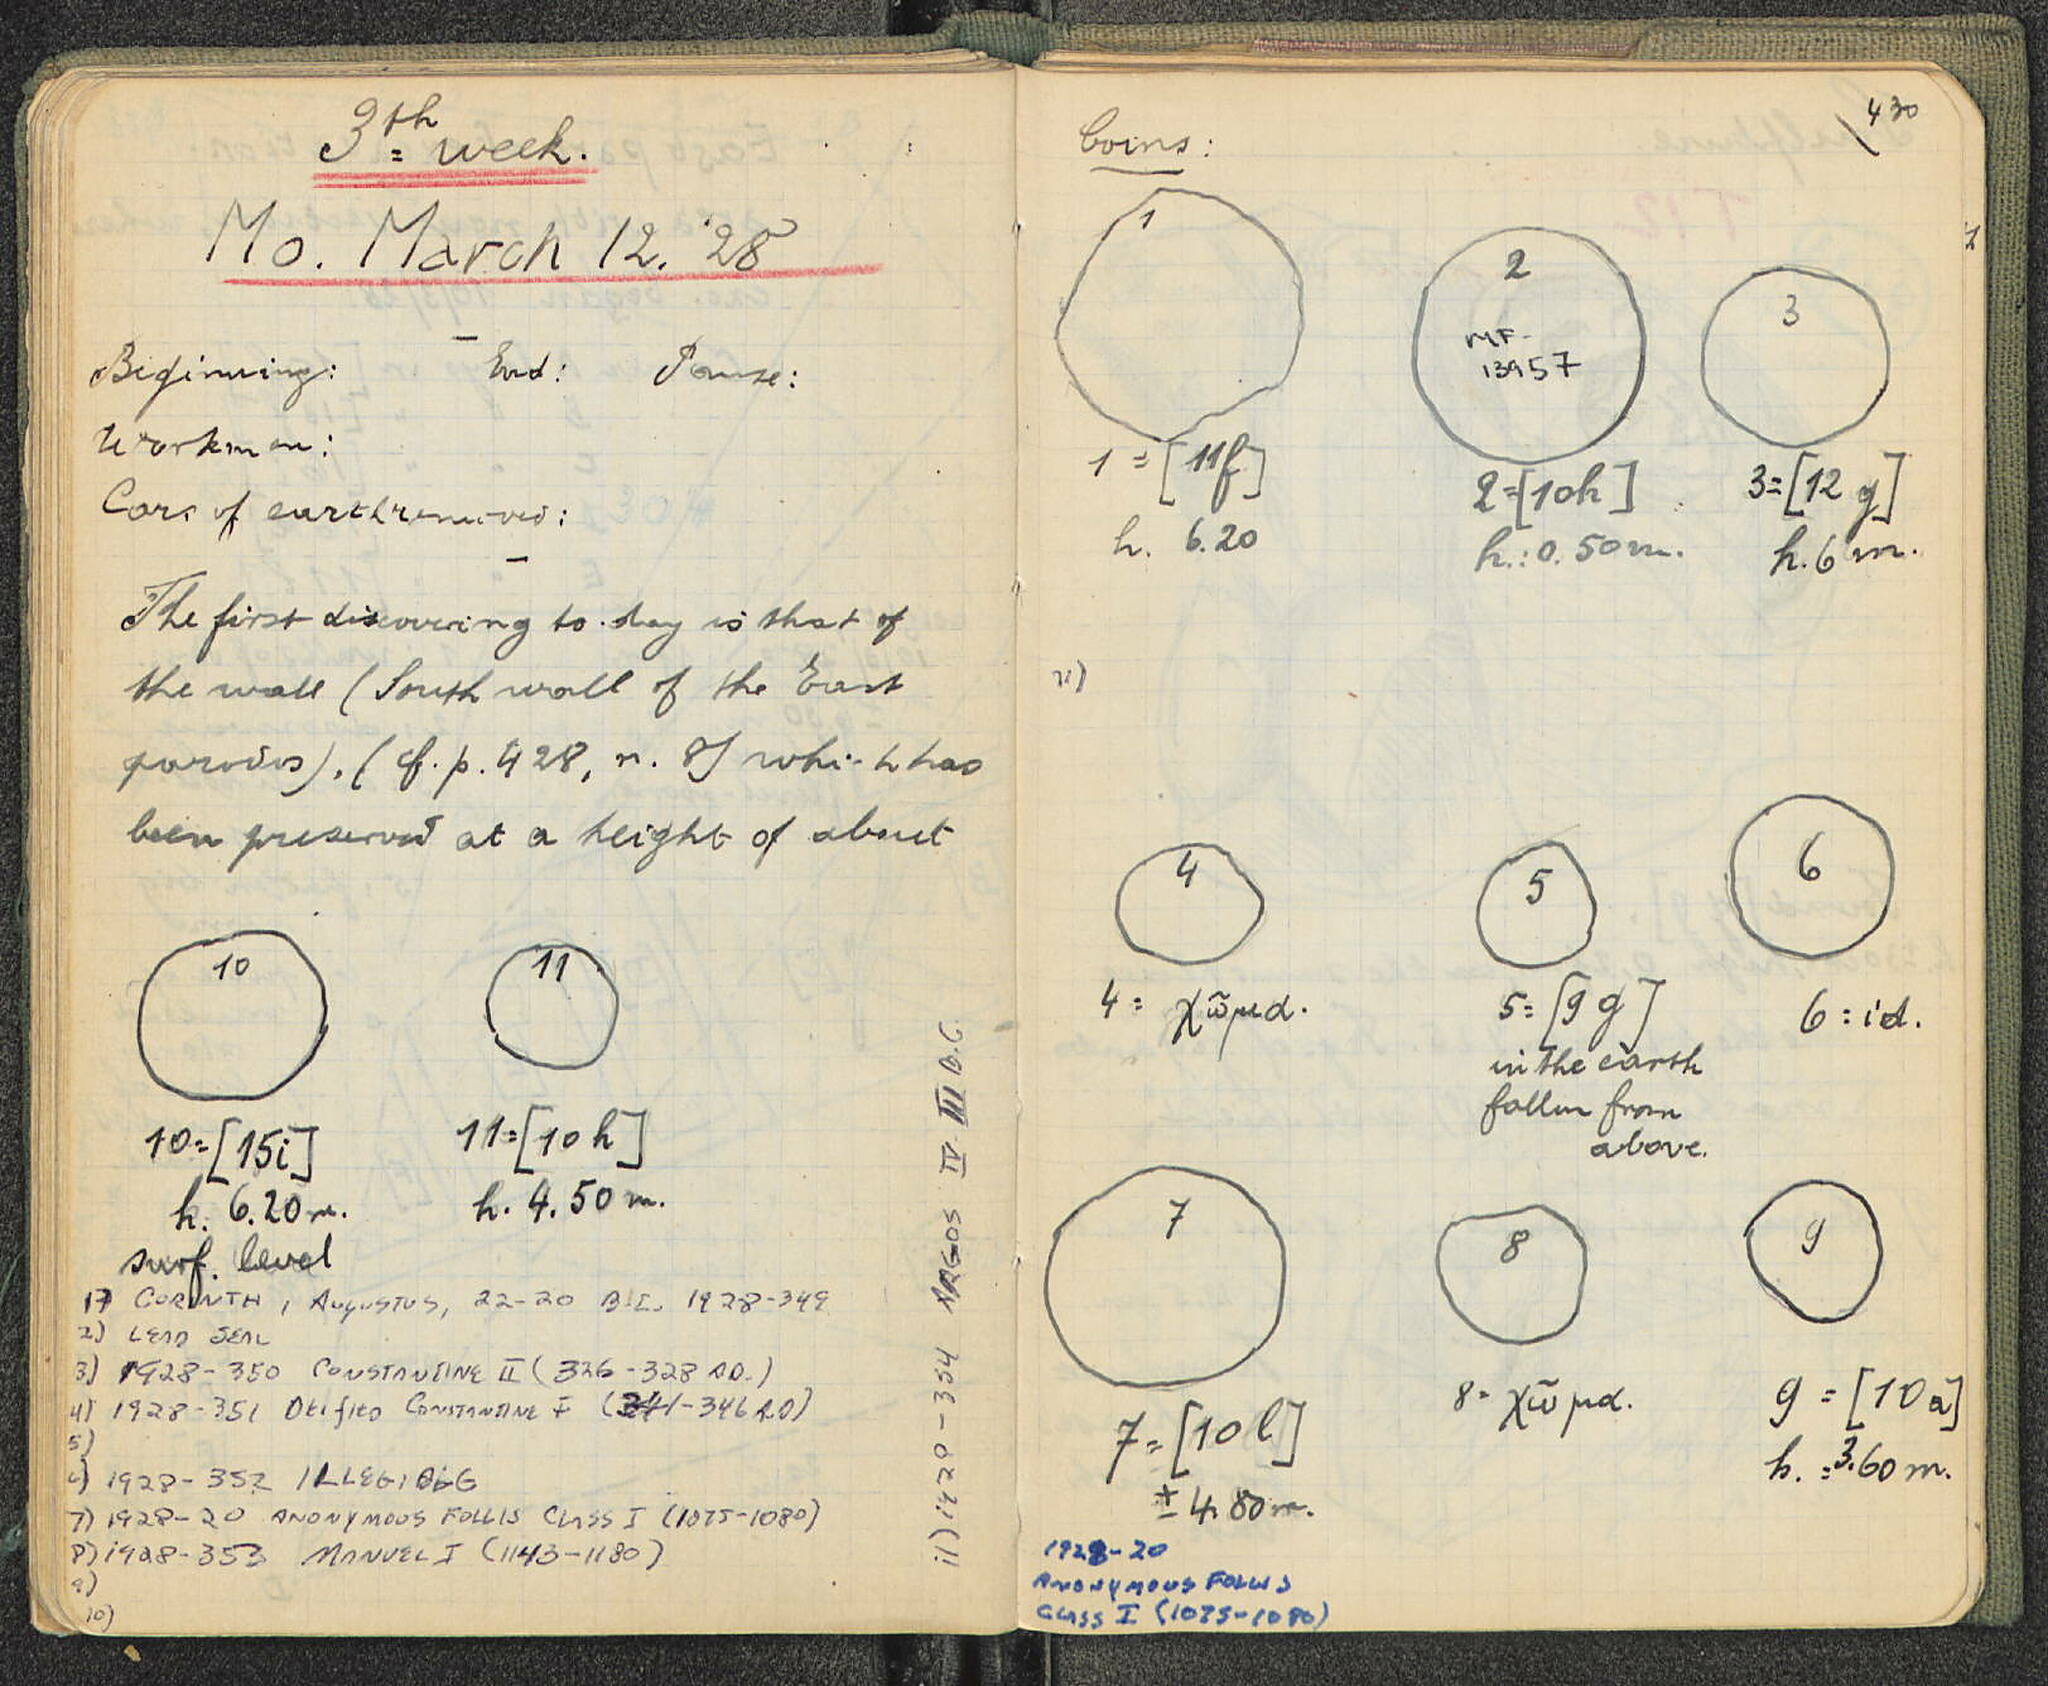 3th week.
Mo. March 12. '28
Beginning: End: Pause:
Workmen:
Cars of earth removed:
The first discovering to-day is that of
the wall (South wall of the East
parodos), (cf. p. 428, n. 8) which has
been preserved at a height of about
10
11
10=[15i]
11=[10h]
h. 6.20 m.
h. 4.50 m.
surf. level
1) CORINTH, AUGUSTUS, 22-20 B.C. 1928-349
2) LEAD SEAL
3) 1928-350 CONSTANTINE II (326-328 AD.)
4) 1928-351 DEIFIED CONSTANTINE I (341-346 AD)
5)
6) 1928-352 ILLEGIBLE
7) 1928-20 ANONYMOUS FOLLIS CLASS I (1075-1080)
8) 1928-353 MANUEL I (1143-1180)
9)
10)
11) 1928-354 ARGOS IV-III B.C.
430
Coins:
1
2
MF-
13957
3
1=[11f]
h. 6.20
2=[10h]
h.: 0.50 m.
3=[12g]
h. 6 m.
11)
4
5
6
4= χῶμα.
5=[9g]
in the earth
fallen from
above.
6=id.
7
8
9
7=[10l]
± 4.80 m.
8= χῶμα.
9=[10a]
h. = 3.60 m.
1928-20
ANONYMOUS FOLLIS
CLASS I (1075-1080)